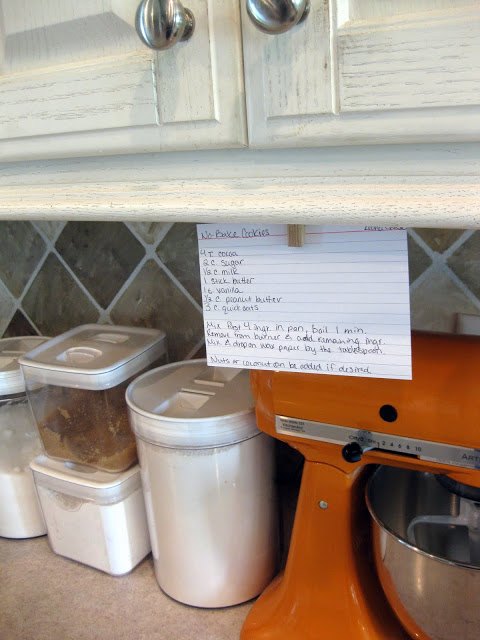 No-Bake Cookies
4 T. cocoa
2 c. sugar
1/2 c. milk
1 stick butter
1 t. vanilla
1/2 c. peanut butter
3 c. quick oats
Mix first 4 ingr. in pan, boil 1 min.
Remove from burner & add remaining ingr.
Mix & drop on wax paper by the tablespoon.
Nuts or coconut can be added if desired.
2 4 6 8 10